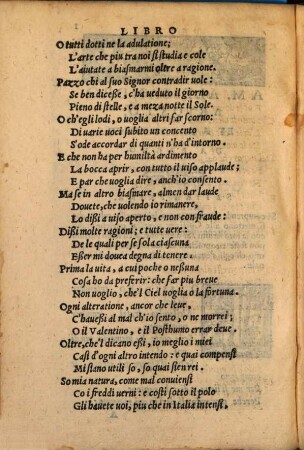 LIBRO
O tutti dotti ne la adulatione;
L'arte che piu tra noi si studia e cole
L'aiutate a biasmarmi oltre a ragione.
Pazzo chi al suo Signor contradir uole:
Se ben dicesse, c'ha ueduto il giorno
Pieno di stelle, e a meza notte il Sole.
O ch'egli lodi, o uoglia altri far scorno:
Di uarie uoci subito un concento
S'ode accordar di quanti n'ha d'intorno.
E che non ha per humiltà ardimento
La bocca aprir, con tutto il uiso applaude:
E par che uoglia dire, anch'io consento.
Ma se in altro biasmare, almen dar laude
Douete, che uolendo io rimanere,
Lo dißi a uiso aperto, e non con fraude:
Dißi molte ragioni; e tutte uere:
De le quali per se sola ciascuna
Esser mi douea degna di tenere.
Prima la uita, a cui poche o neßuna
Cosa ho da preferir: che far piu breue
Non uoglio, che'l Ciel uoglia o la fortuna.
Ogni alteratione, ancor che leue,
C'haueßi al mal ch'io sento, o ne morrei;
O il Valentino, e il Posthumo errar deue.
Oltre, che'l dicano eßi, io meglio i miei
Casi d'ogni altro intendo: e quai compensi
Mi siano utili so, so quai sten rei.
So mia natura, come mal conuiensi
Co i freddi uerni: e costì sotto il polo
Gli hauete uoi, piu che in Italia intensi.